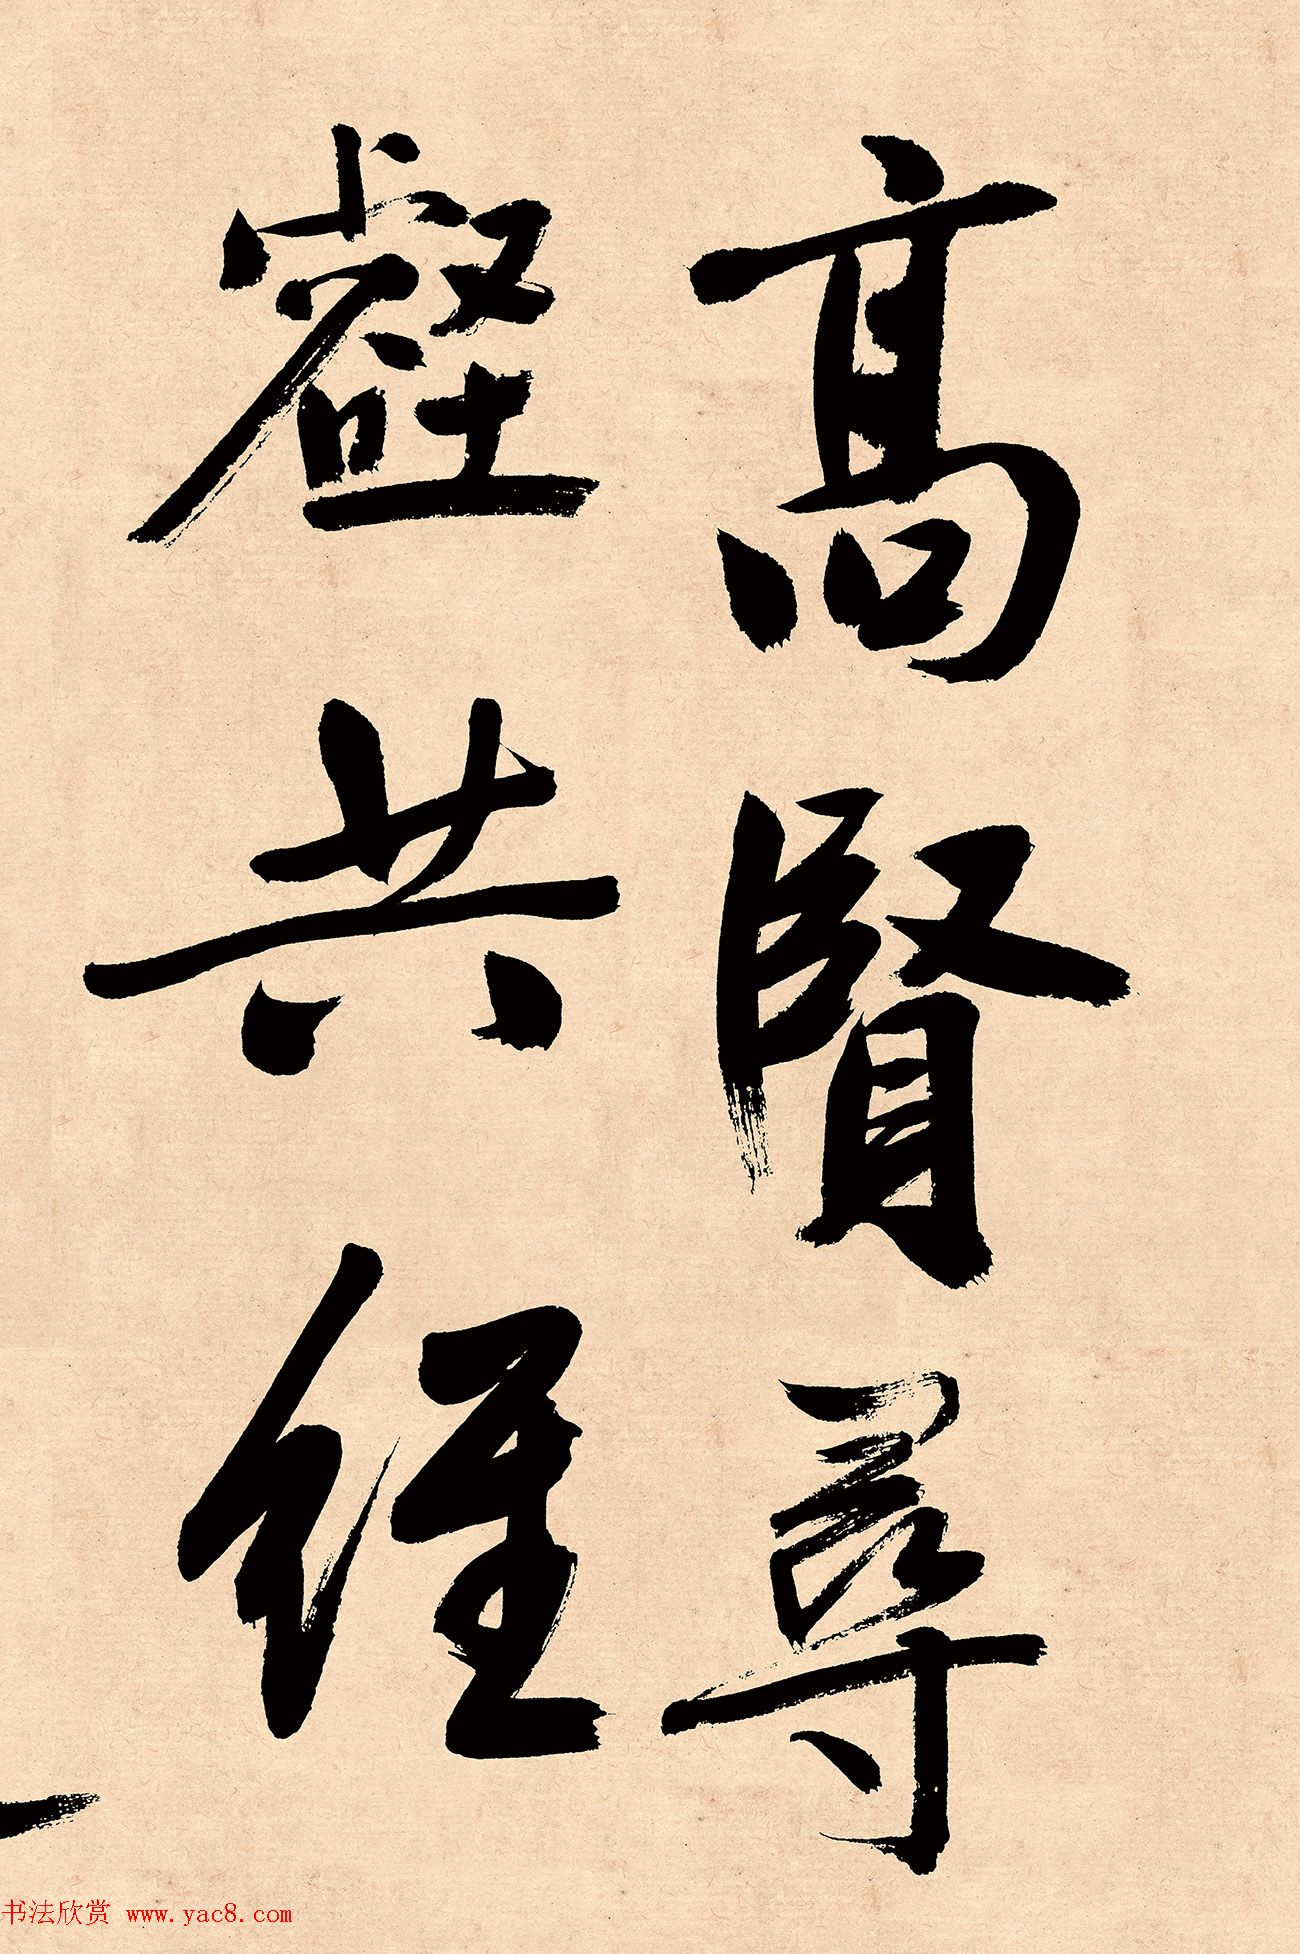 高賢尋
壑共經
书法欣赏 www.yac8.com